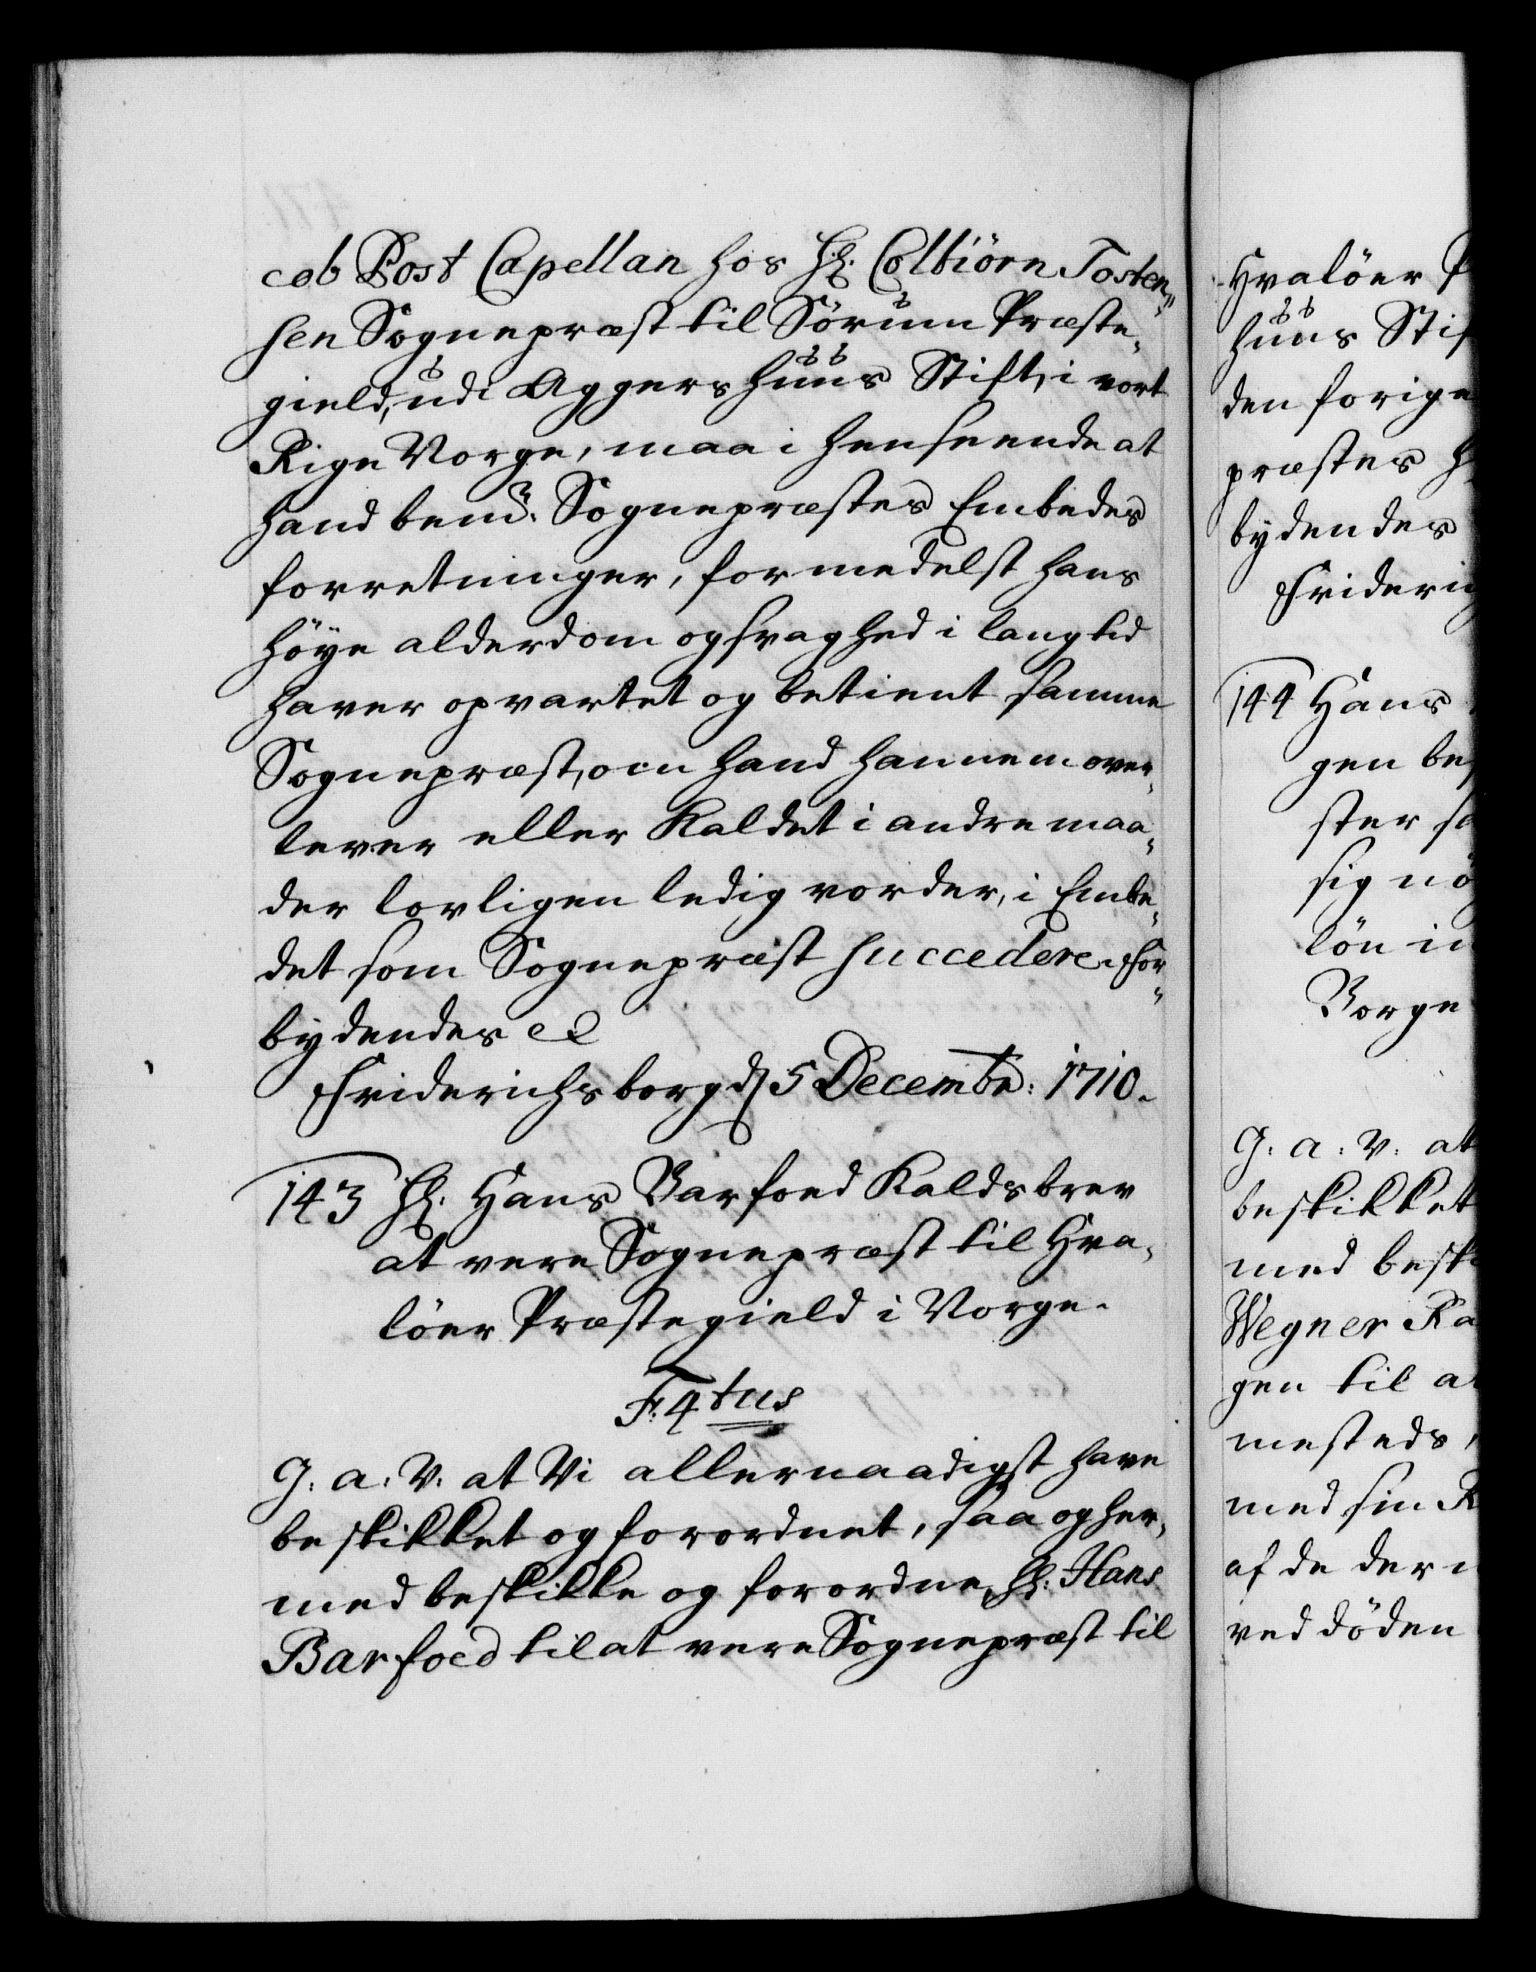 cob Post Capellan hos Hr. Colbiörn Tosten„
sen Sognepræst til Sörum Præste„
gield, udi Aggershuus Stift, i vort
Rige Norge, maa i henseende at
hand bemte. Sognepræstes Embedes
forretninger, formedelst hans
höye alderdom og svaghed i lang tid
haver opvartet og betient samme
Sognepræst, om hand hannem over„
lever eller Kaldet i andre maa„
der lovligen ledig vorder, i Embe„
det som Sognepræst succedere. For„
bydendes etc
Friderichsborg d. 5 Decembr: 1710.
143 Hr. Hans Barfoed Kaldsbrev
at vere Sognepræst til Hva„
löer Præstegield i Norge.
F: 4tus
G: a: V: at Vi allernaadigst have
beskikket og forordnet, saa og her„
med beskikke og forordne, Hr: Hans
Barfoed til at vere Sognepræst til
Hvalöer
huus Stif
den forige
præstes
bydendes
Friderig
144 Hans
gen be
ster
sig
lön
Norge
G: a: V: at
beskikket
med besk
Wegner
gen til
mesteds
med sin
af de der
ved döden